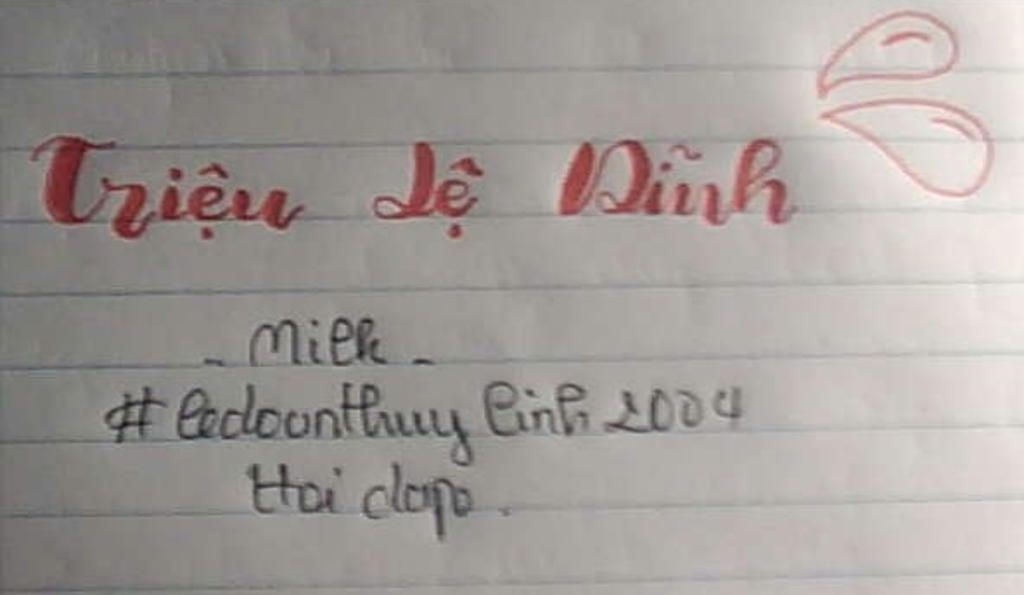 Triệu Lệ Dĩnh
- Milk -
#ledoanthuy linh 2004
Hai dapo.